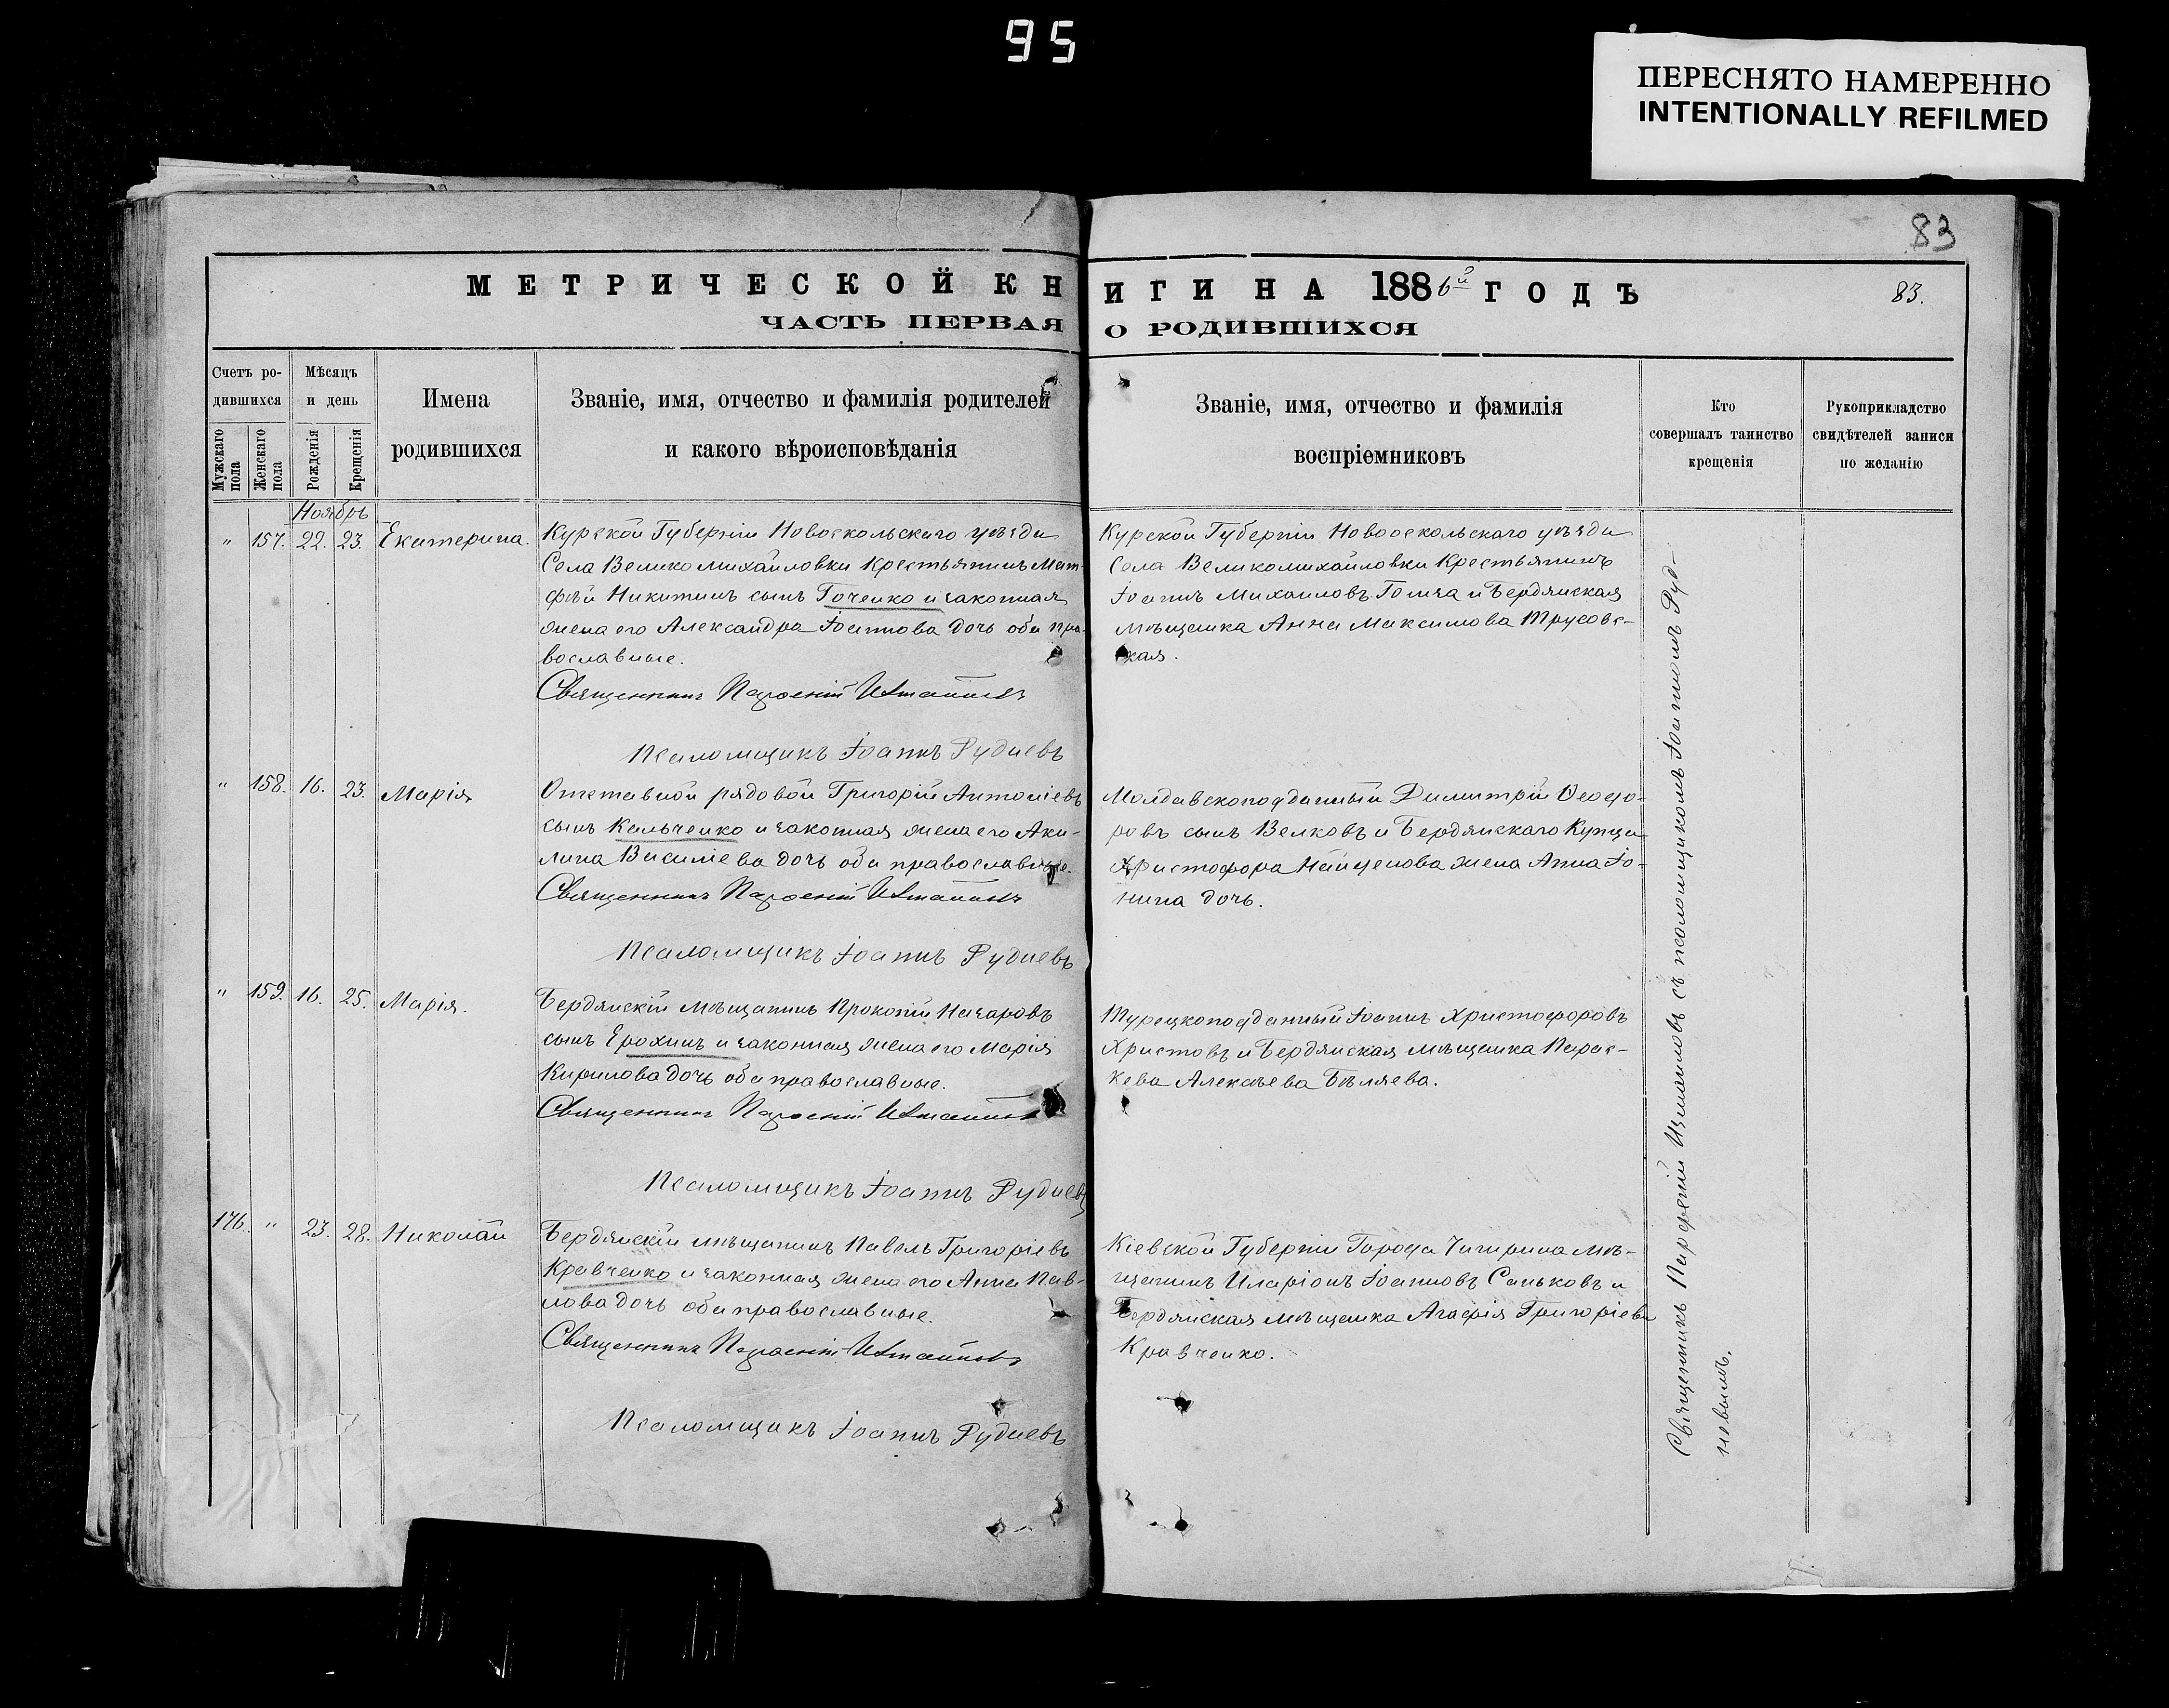 95
ПЕРЕСНЯТО НАМЕРЕННО
INTENTIONALLY REFILMED
83
МЕТРИЧЕСКОЙ КНИГИ НА 1886й ГОДЪ
83.
ЧАСТЬ ПЕРВАЯ О РОДИВШИХСЯ
Счетъ ро-
дившихся
Мужскаго пола
Женскаго пола
Мѣсяцъ
и день
Рожденія
Крещенія
Имена
родившихся
Званіе, имя, отчество и фамилія родителей
и какого вѣроисповѣданія
Званіе, имя, отчество и фамилія
воспріемниковъ
Кто
совершалъ таинство
крещенія
Рукоприкладство
свидѣтелей записи
по желанію
Ноябрь
" 157. 22. 23. Екатерина.
Курской Губерніи Новоскольскаго уѣзда
Села Великомихайловки Крестьянинъ Мат-
фѣй Никитинъ сынъ Гоченко и законная
жена его Александра Іоаннова дочь оба пра-
вославные.
Священникъ Парѳеній
Псаломщикъ Іоаннъ Рудневъ
Курской Губерніи Новооскольскаго уѣзда
Села Великомихайловки Крестьянинъ
Іоаннъ Михаиловъ и Бердянская
мѣщанка Анна Максимова Трусовс-
кая.
" 158. 16. 23. Марія
Отставной рядовой Григорій Антоніевъ
сынъ Кальченко и законная жена его Аки-
лина Василіева дочь оба православные.
Священникъ Парѳеній
Псаломщикъ Іоаннъ Рудневъ
Молдавскоподданный Димитрій Ѳеодо-
ровъ сынъ Велковъ и Бердянскаго Купца
Христофора Найденова жена Анна Іо-
нина дочь.
" 159. 16. 25. Марія.
Бердянскій мѣщанинъ Прокопій Назаровъ
сынъ Ерохинъ и законная жена его Марія
Кирилова дочь оба православные.
Священникъ Парѳеній
Псаломщикъ Іоаннъ Рудневъ
Турецкоподданный Іоаннъ Христофоровъ
Христовъ и Бердянская мѣщанка Парас-
кева Алексѣева Бѣляева.
176. " 23. 28. Николай
Бердянскій мѣщанинъ Павелъ Григоріевъ
Кравченко и законная жена его Анна Пав-
лова дочь оба православные.
Священникъ Парѳеній
Псаломщикъ Іоаннъ Рудневъ
Кіевской Губерніи Города Чигирина мѣ-
щанинъ Иларіонъ Іоанновъ Саньковъ и
Бердянская мѣщанка Агафія Григоріева
Кравченко.
Священникъ Парфеній Измаиловъ съ псаломщикомъ Іоанномъ Руд-
невымъ.